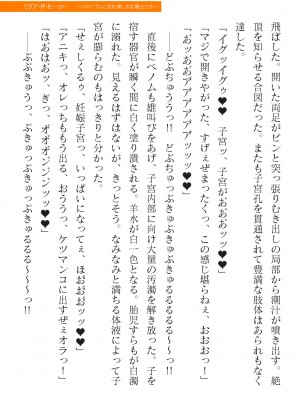 ミラア・ザ・ヒーロー
飛ばした。開いた両足がピンと突っ張りむき出しの局部から潮汁が噴き出す。絶
頂を知らせる合図だった。またも子宮孔を貫通されて豊満な肢体はあられもなく
達した。
「イグッイグゥ♥♥　子宮ッ、子宮がぁおおおッッ♥♥」
「マジで開きやがった、すげぇぜまったくっ、この感じ堪らねぇ、おおおっ！」
「おッおおアアアアアァッッッ♥♥」
どぶちゅううっ!!　どぶちゅっぶきゅぶきゅぶきゅるるるる〜〜〜っ!!
直後にバノムも雄叫びをあげ、子宮内部に向けて大量の汚濁を解き放った。子を
宿す器官が瞬く間に白く塗り潰される。羊水が白一色となる。胎児すらもが白濁
に溺れた。見えるはずはないが、きっとそう。なみなみと満ちる体液によって子
宮が膨らむのもはっきりと分かった。
「せぇしくるゥ、妊娠子宮っ、いっぱいになってぇ、ほおおおッッ♥♥」
「アニキっ、オレっちももう出る、おううっ、ケツマンコに出すぜぇオラっ！」
「はぁはぁッ、ぎっ、オオオンンンッッ♥♥」
――ぶぶきゅうっっ、ぶきゅっぶきゅっぶきゅるるるる〜〜〜〜っ!!